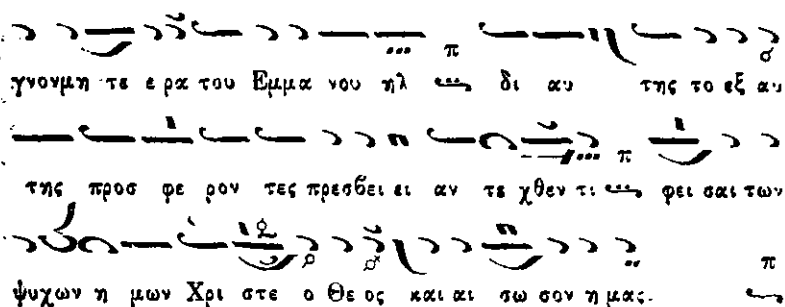 π
γνουμη τε ε ρα του Εμμα νου ηλ δι αυ της το εξ αυ
π
της προσ φε ρον τες πρεσβει ει αν τε χθεν τι φει σαι των
π
ψυχων η μων Χρι στε ο Θε ος και αι σω σον η μας.